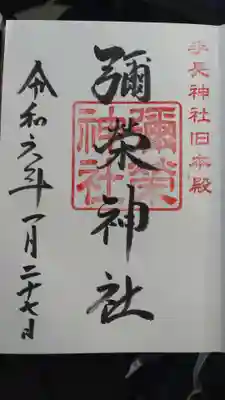 手長神社旧本殿
彌榮神社
彌榮
神社
令和六年一月二十七日